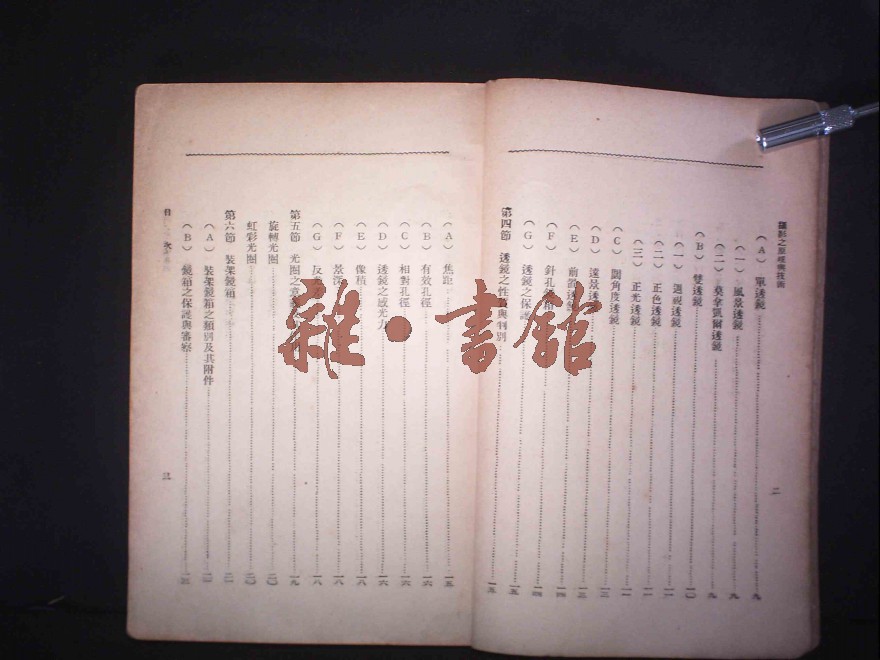 攝影之原理與技術
(A) 單透鏡……九
(一) 風景透鏡……九
(二) 莫拿凱爾透鏡……九
(B) 雙透鏡……一〇
(一) 透視透鏡……一一
(二) 正色透鏡……一一
(三) 正光透鏡……一一
(C) 闊角度透鏡……一二
(D) 遠景透鏡……一三
(E) 前置透鏡……一三
(F) 針孔……一四
(G) 透鏡之保護……一四
第四節 透鏡之性質與判別……一五
二
(A) 焦距……一五
(B) 有效孔徑……一六
(C) 相對孔徑……一六
(D) 透鏡之感光力……一六
(E) 像積……一八
(F) 景深……一八
(G) 反……一八
第五節 光圈之意義……一九
旋轉光圈……二〇
虹彩光圈……二〇
第六節 裝架鏡箱……二一
(A) 裝架鏡箱之類別及其附件……二一
(B) 鏡箱之保護與審察……二三
目次
三
雜·書館